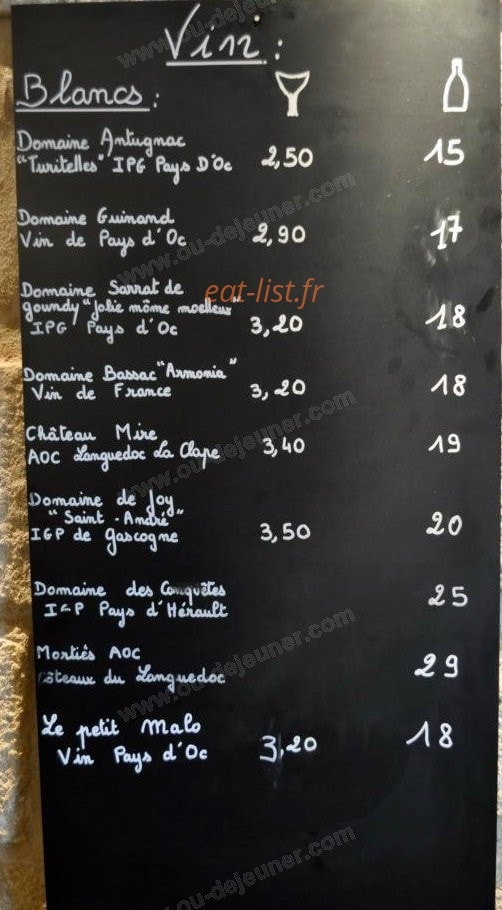 Vin :
Blancs :
Domaine Antugnac
"Turitelles" IPG Pays D'Oc 2,50 15
Domaine Guinand
Vin de Pays d'Oc 2,90 17
Domaine Sarrat de
goundy "jolie môme moelleux"
IPG Pays d'Oc 3,20 18
Domaine Bassac "Armonia"
Vin de France 3,20 18
Château Mire
AOC Languedoc La Clape 3,40 19
Domaine de Joy
"Saint-André"
IGP de Gascogne 3,50 20
Domaine des Conquêtes
IGP Pays d'Hérault 25
Mortiès AOC
Côteaux du Languedoc 29
Le petit Malo
Vin Pays d'Oc 3,20 18
eat-list.fr
www.ou-dejeuner.com
www.ou-dejeuner.com
www.ou-dejeuner.com
www.ou-dejeuner.com
www.ou-dejeuner.com